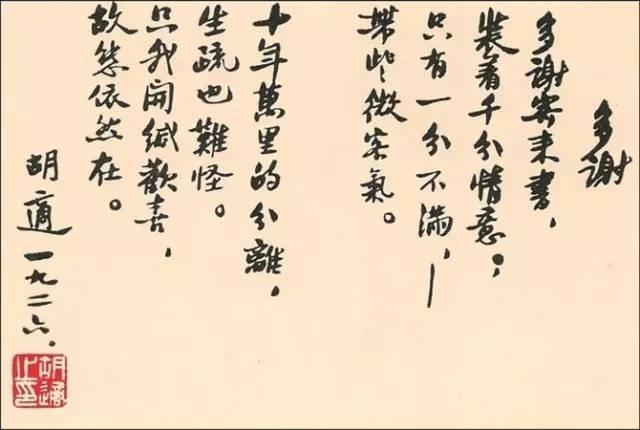 多謝
多謝寄来書，
裝着千分情意；
只有一分不滿，—
帶些微客氣。
十年萬里的分離，
生疏也難怪。
只我開緘歡喜，
故態依然在。
胡適 一九二六、
胡適之印